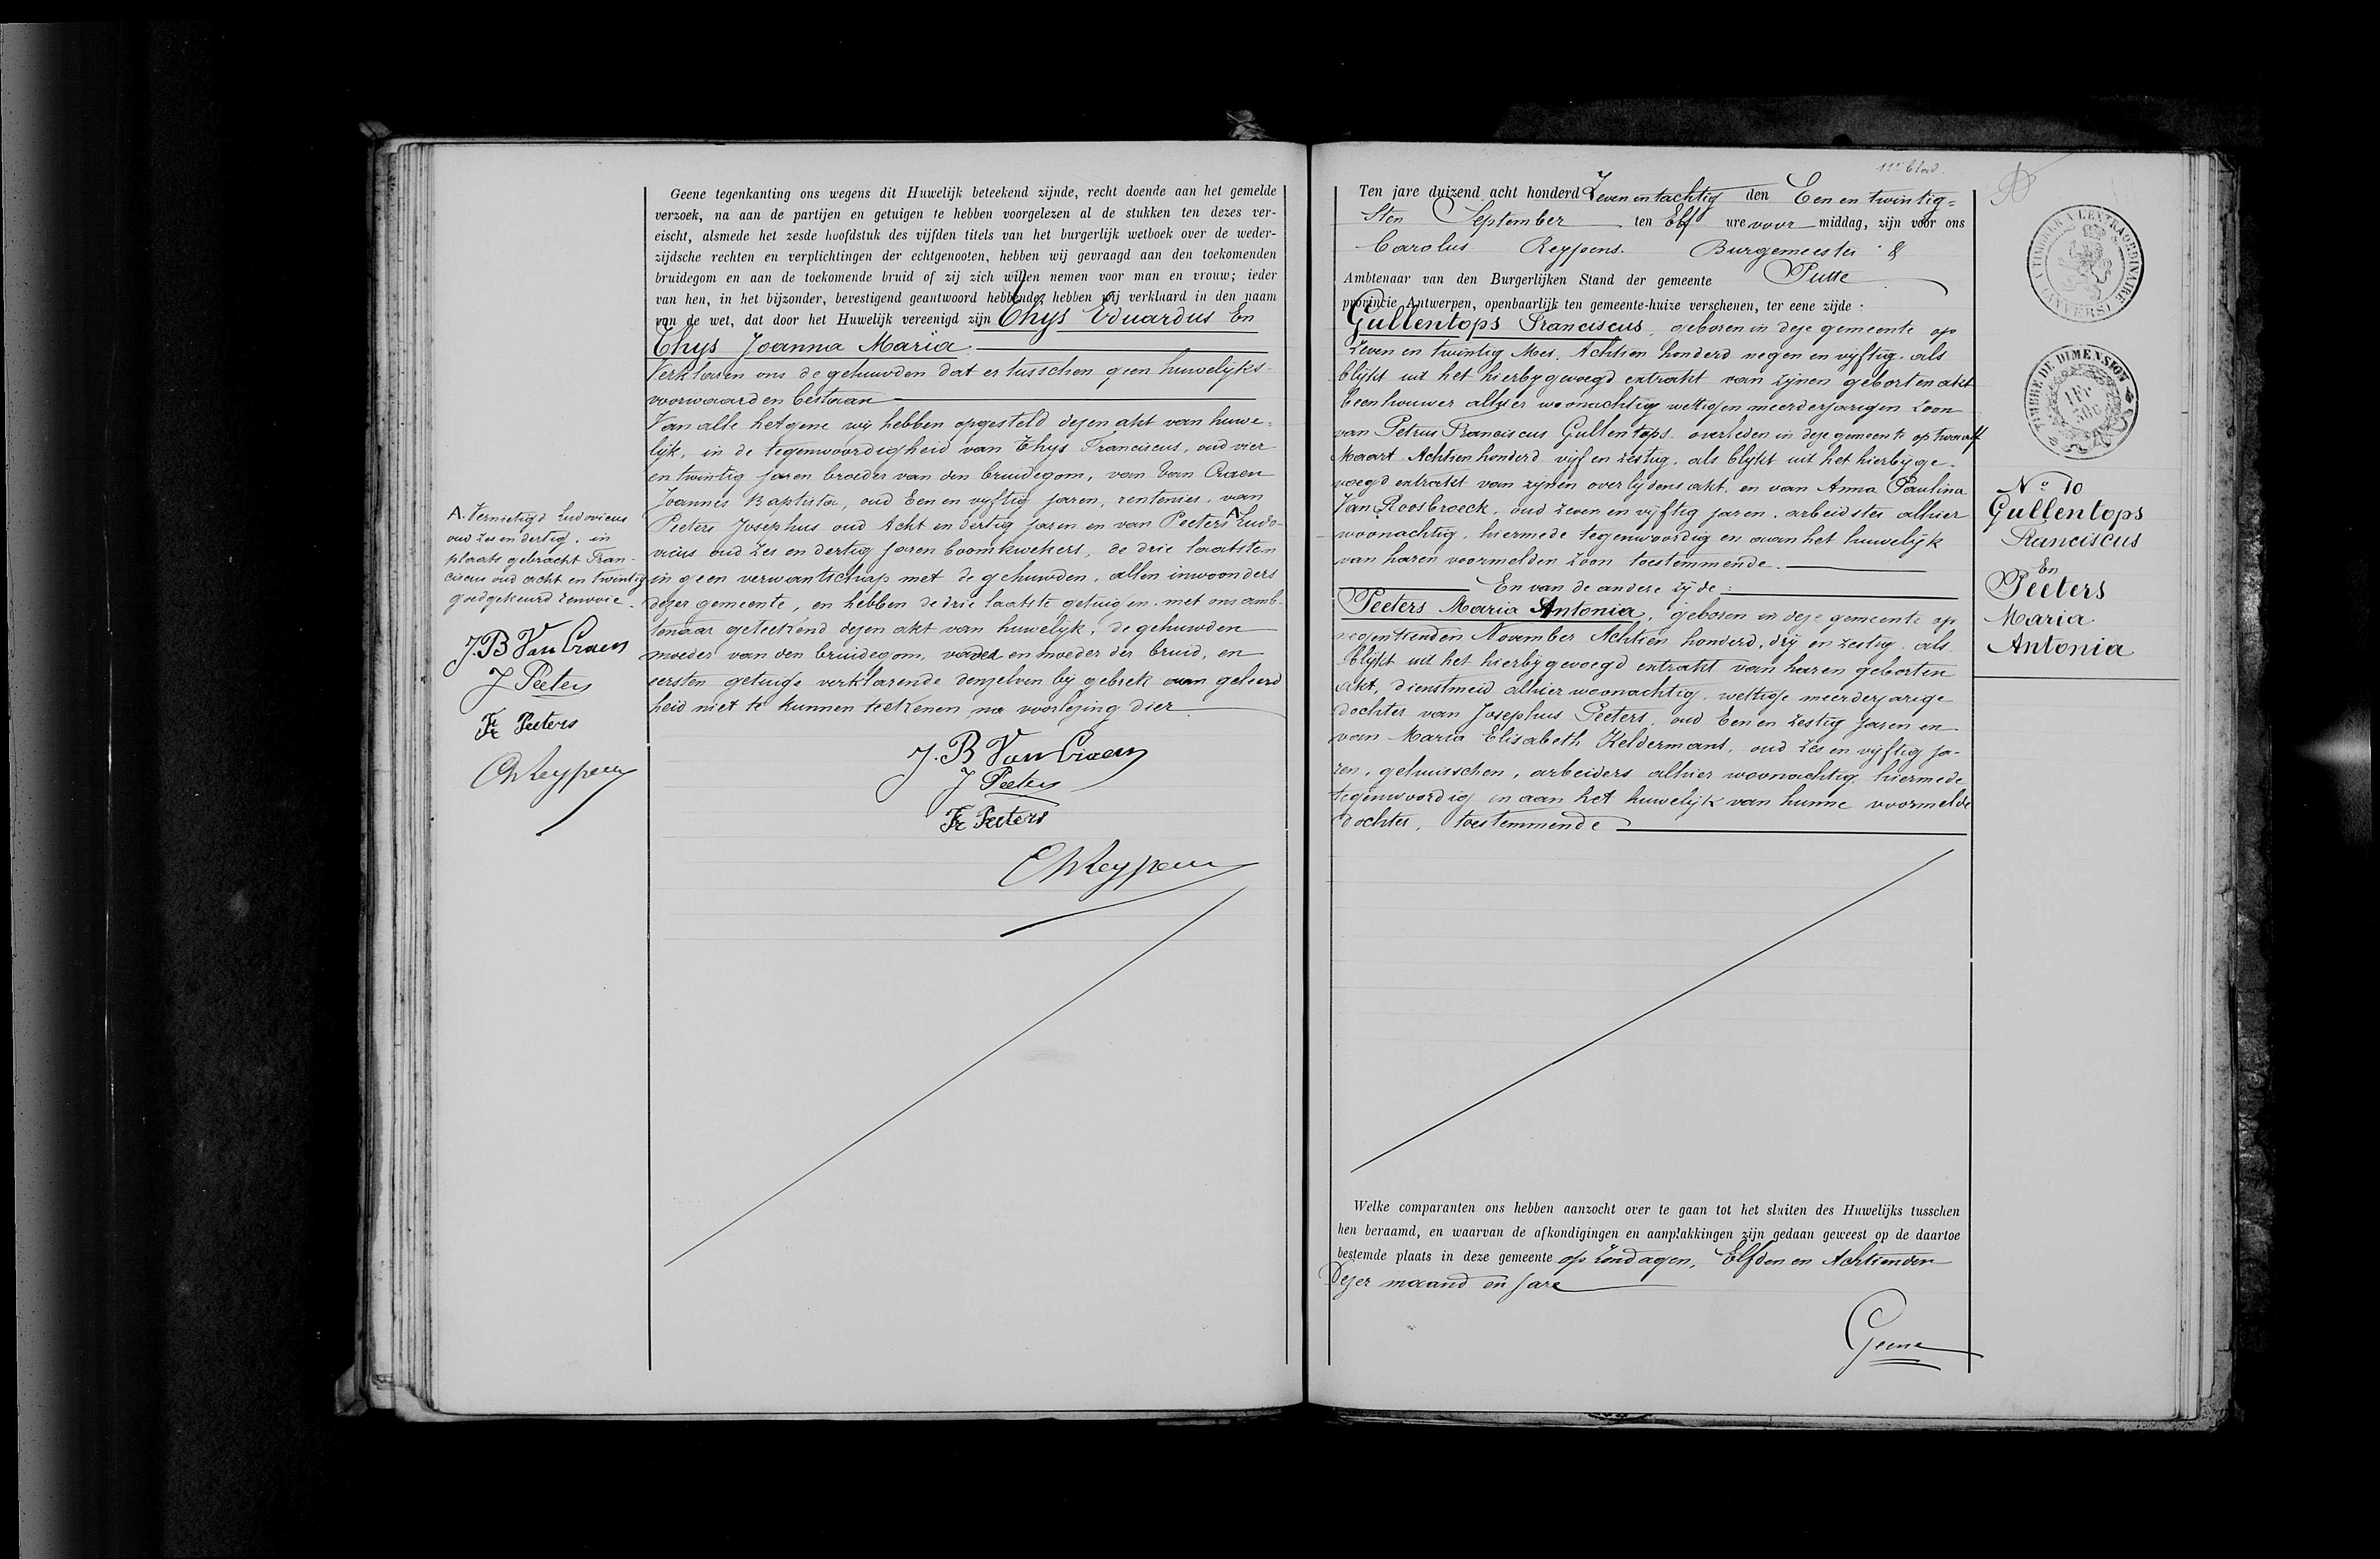 Geene tegenkanting ons wegens dit Huwelijk beteekend zijnde, recht doende aan het gemelde
verzoek, na aan de partijen en getuigen te hebben voorgelezen al de stukken ten dezes ver-
eischt, alsmede het zesde hoofdstuk des vijfden titels van het burgerlijk wetboek over de weder-
zijdsche rechten en verplichtingen der echtgenooten, hebben wij gevraagd aan den toekomenden
bruidegom en aan de toekomende bruid of zij zich willen nemen voor man en vrouw; ieder
van hen, in het bijzonder, bevestigend geantwoord hebbende, hebben wij verklaard in den naam
van de wet, dat door het Huwelijk vereenigd zijn Thys Eduardus En
Thys Joanna Maria
Verklaren ons de gehuwden dat er tusschen geen huwelijks-
voorwaarden bestaan
Van alle hetgene wij hebben opgesteld dezen akt van huwe-
lijk, in de tegenwoordigheid van Thys Franciscus, oud vier
en twintig jaren broeder van den bruidegom, van Van Craen
Joannes Baptista, oud Een en vyftig jaren, rentenier, van
Peeters Josephus oud Acht en dertig jaren en van Peeters A Ludo-
vicus oud Zes en dertig jaren boomkwekers, de drie laatsten
in geen verwantschap met de gehuwden, allen inwoonders
dezer gemeente, en hebben de drie laatste getuigen met ons amb-
tenaar geteekend dezen akt van huwelijk, de gehuwden
moeder van den bruidegom, vader en moeder der bruid, en
eersten getuige verklarende denzelven by gebrek aan geleerd
heid niet te kunnen teekenen na voorlezing dier
J. B Van Craen
J Peeters
Fr Peeters
Ch Reyppens
A. Vernietigd Ludovicus
oud Zes en dertig, in
plaats gebracht Fran-
ciscus oud acht en twintig
goedgekeurd renvooie.
J. B Van Craen
J Peeters
Fr Peeters
Ch Reyppens
11e blad.
Ten jare duizend acht honderd Zeven en tachtig den Een en twintig-
sten September ten Elf ure voor middag, zijn voor ons
Carolus Reyppens. Burgemeester &
Ambtenaar van den Burgerlijken Stand der gemeente Putte
provincie Antwerpen, openbaarlijk ten gemeente-huize verschenen, ter eene zijde :
Gullentops Franciscus, geboren in deze gemeente op
Zeven en twintig Mei, Achtien honderd negen en vyftig, als
blijkt uit het hierbygevoegd extrakt van zynen geborten akt
beenhouwer alhier woonachtig wettigen meerderjarigen zoon
van Petrus Franciscus Gullentops overleden in deze gemeente op twaalf
Maart Achtien honderd vijf en zestig, als blijkt uit het hierbijge-
voegd extrakt van zynen overlydens akt, en van Anna Paulina
Van Roosbroeck, oud zeven en vijftig jaren, arbeidster alhier
woonachtig, hiermede tegenwoordig en aan het huwelijk
van haren voormelden zoon toestemmende.
En van de andere zijde :
Peeters Maria Antonia, geboren in deze gemeente op
negentienden November Achtien honderd, drij en zestig, als
blijkt uit het hierbijgevoegd extrakt van haren geborten
akt, dienstmeid alhier woonachtig, wettige meerderjarige
dochter van Josephus Peeters, oud Een en zestig jaren en
van Maria Elisabeth Keldermans, oud Zes en vyftig ja-
ren, gehuisschen, arbeiders alhier woonachtig, hiermede
tegenwoordig en aan het huwelijk van hunne voormelde
dochter, toestemmende
Welke comparanten ons hebben aanzocht over te gaan tot het sluiten des Huwelijks tusschen
hen beraamd, en waarvan de afkondigingen en aanplakkingen zijn gedaan geweest op de daartoe
bestemde plaats in deze gemeente op Zondagen, Elfden en Achtienden
Dezer maand en jare
Geene
A TIMBRER A L'EXTRAORDINAIRE (ANVERS)
TIMBRE DE DIMENSION
1 FR
30 C
No 10
Gullentops
Franciscus
En
Peeters
Maria
Antonia